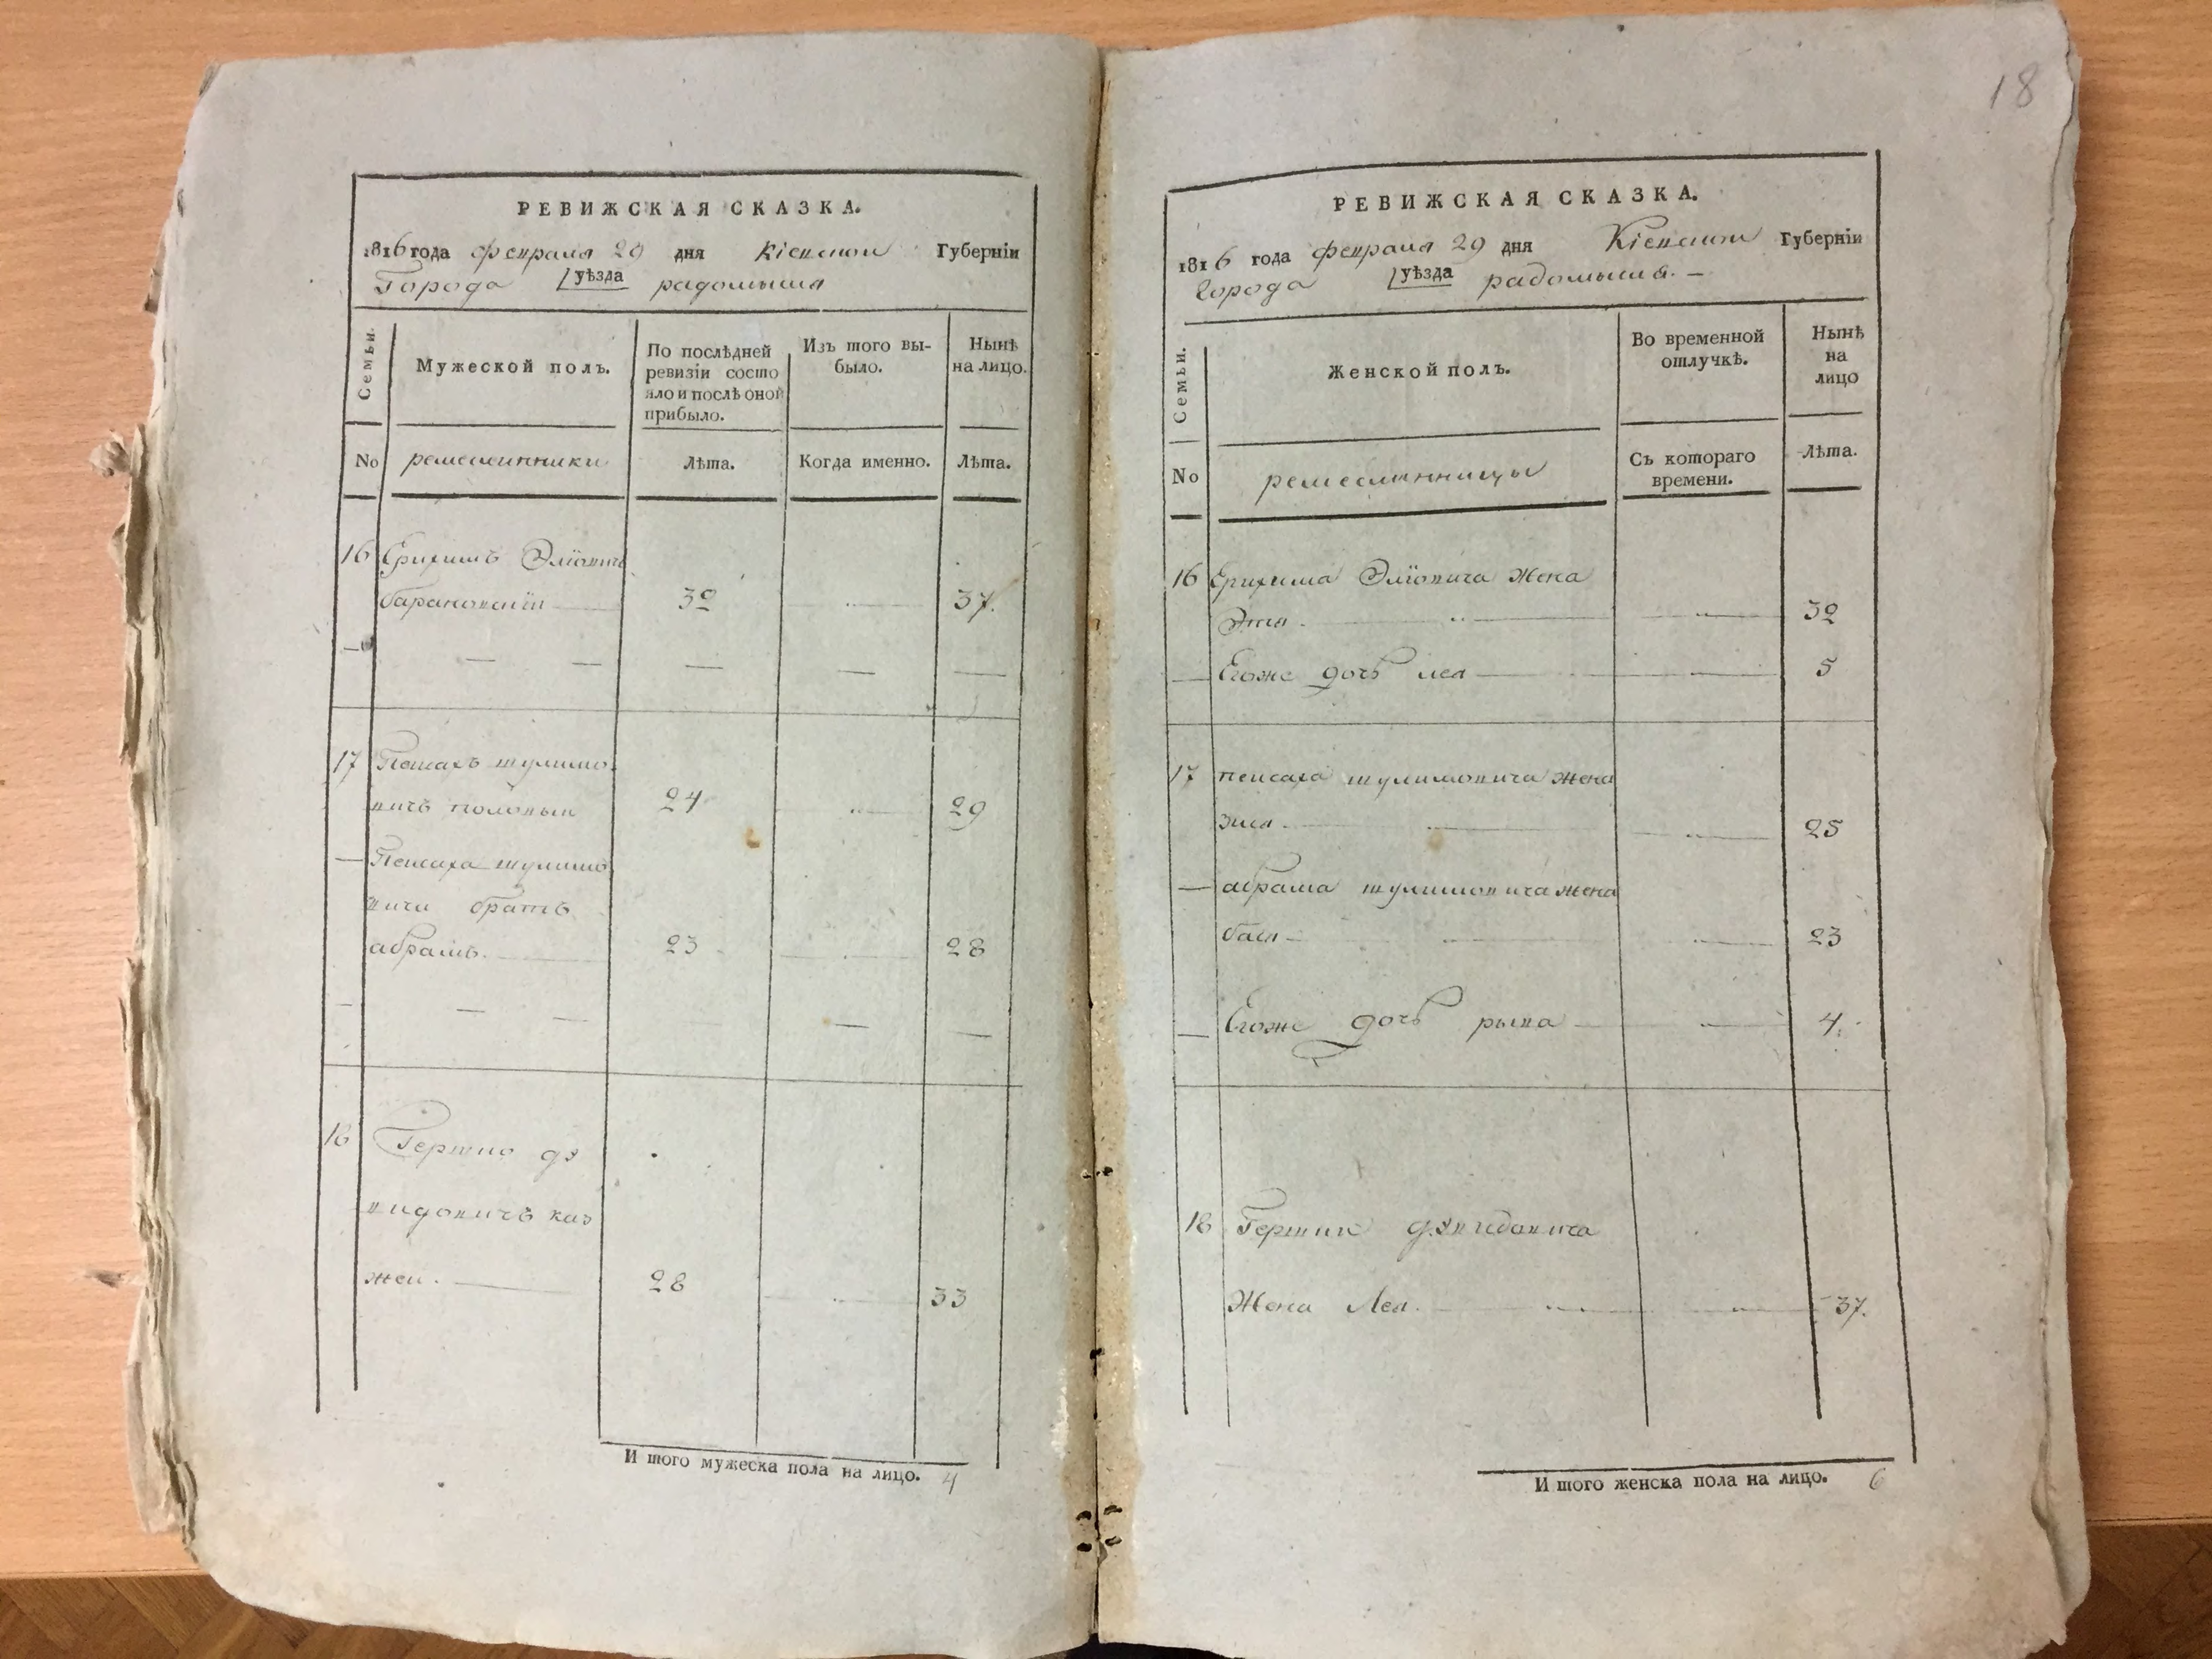 РЕВИЖСКАЯ СКАЗКА.
1816 года февраля 29 дня Кіевской Губерніи
Города уѣзда радомысля
Семьи.
Мужеской полъ.
По послѣдней
ревизіи состо
яло и послѣ оной
прибыло.
Изъ того вы-
было.
Нынѣ
на лицо.
No ремесленники Лѣта. Когда именно. Лѣта.
16 Ерухимъ Эліовичъ
барановскій 32 37.
17 Пейсахъ шулимо
вичъ 24 29
Пейсаха шулимо
вича братъ
абрамъ. 23 28
18 Гершко да
видовичъ каз
жей. 28 33
И того мужеска пола на лицо. 4
18
РЕВИЖСКАЯ СКАЗКА.
1816 года февраля 29 дня Кіевской Губерніи
Города уѣзда радомысля. —
Семьи.
Женской полъ.
Во временной
отлучкѣ.
Нынѣ
на
лицо
No ремесленницы Съ котораго
времени. Лѣта.
16 Ерухима Эліовича жена
Этя. 32
Егоже дочь лея 5
17 пейсаха шулимовича жена
25
абрама шулимовича жена
бася 23
Егоже дочь рыва 4.
18 Гершки давидовича
Жена Лея. 37.
И того женска пола на лицо. 6